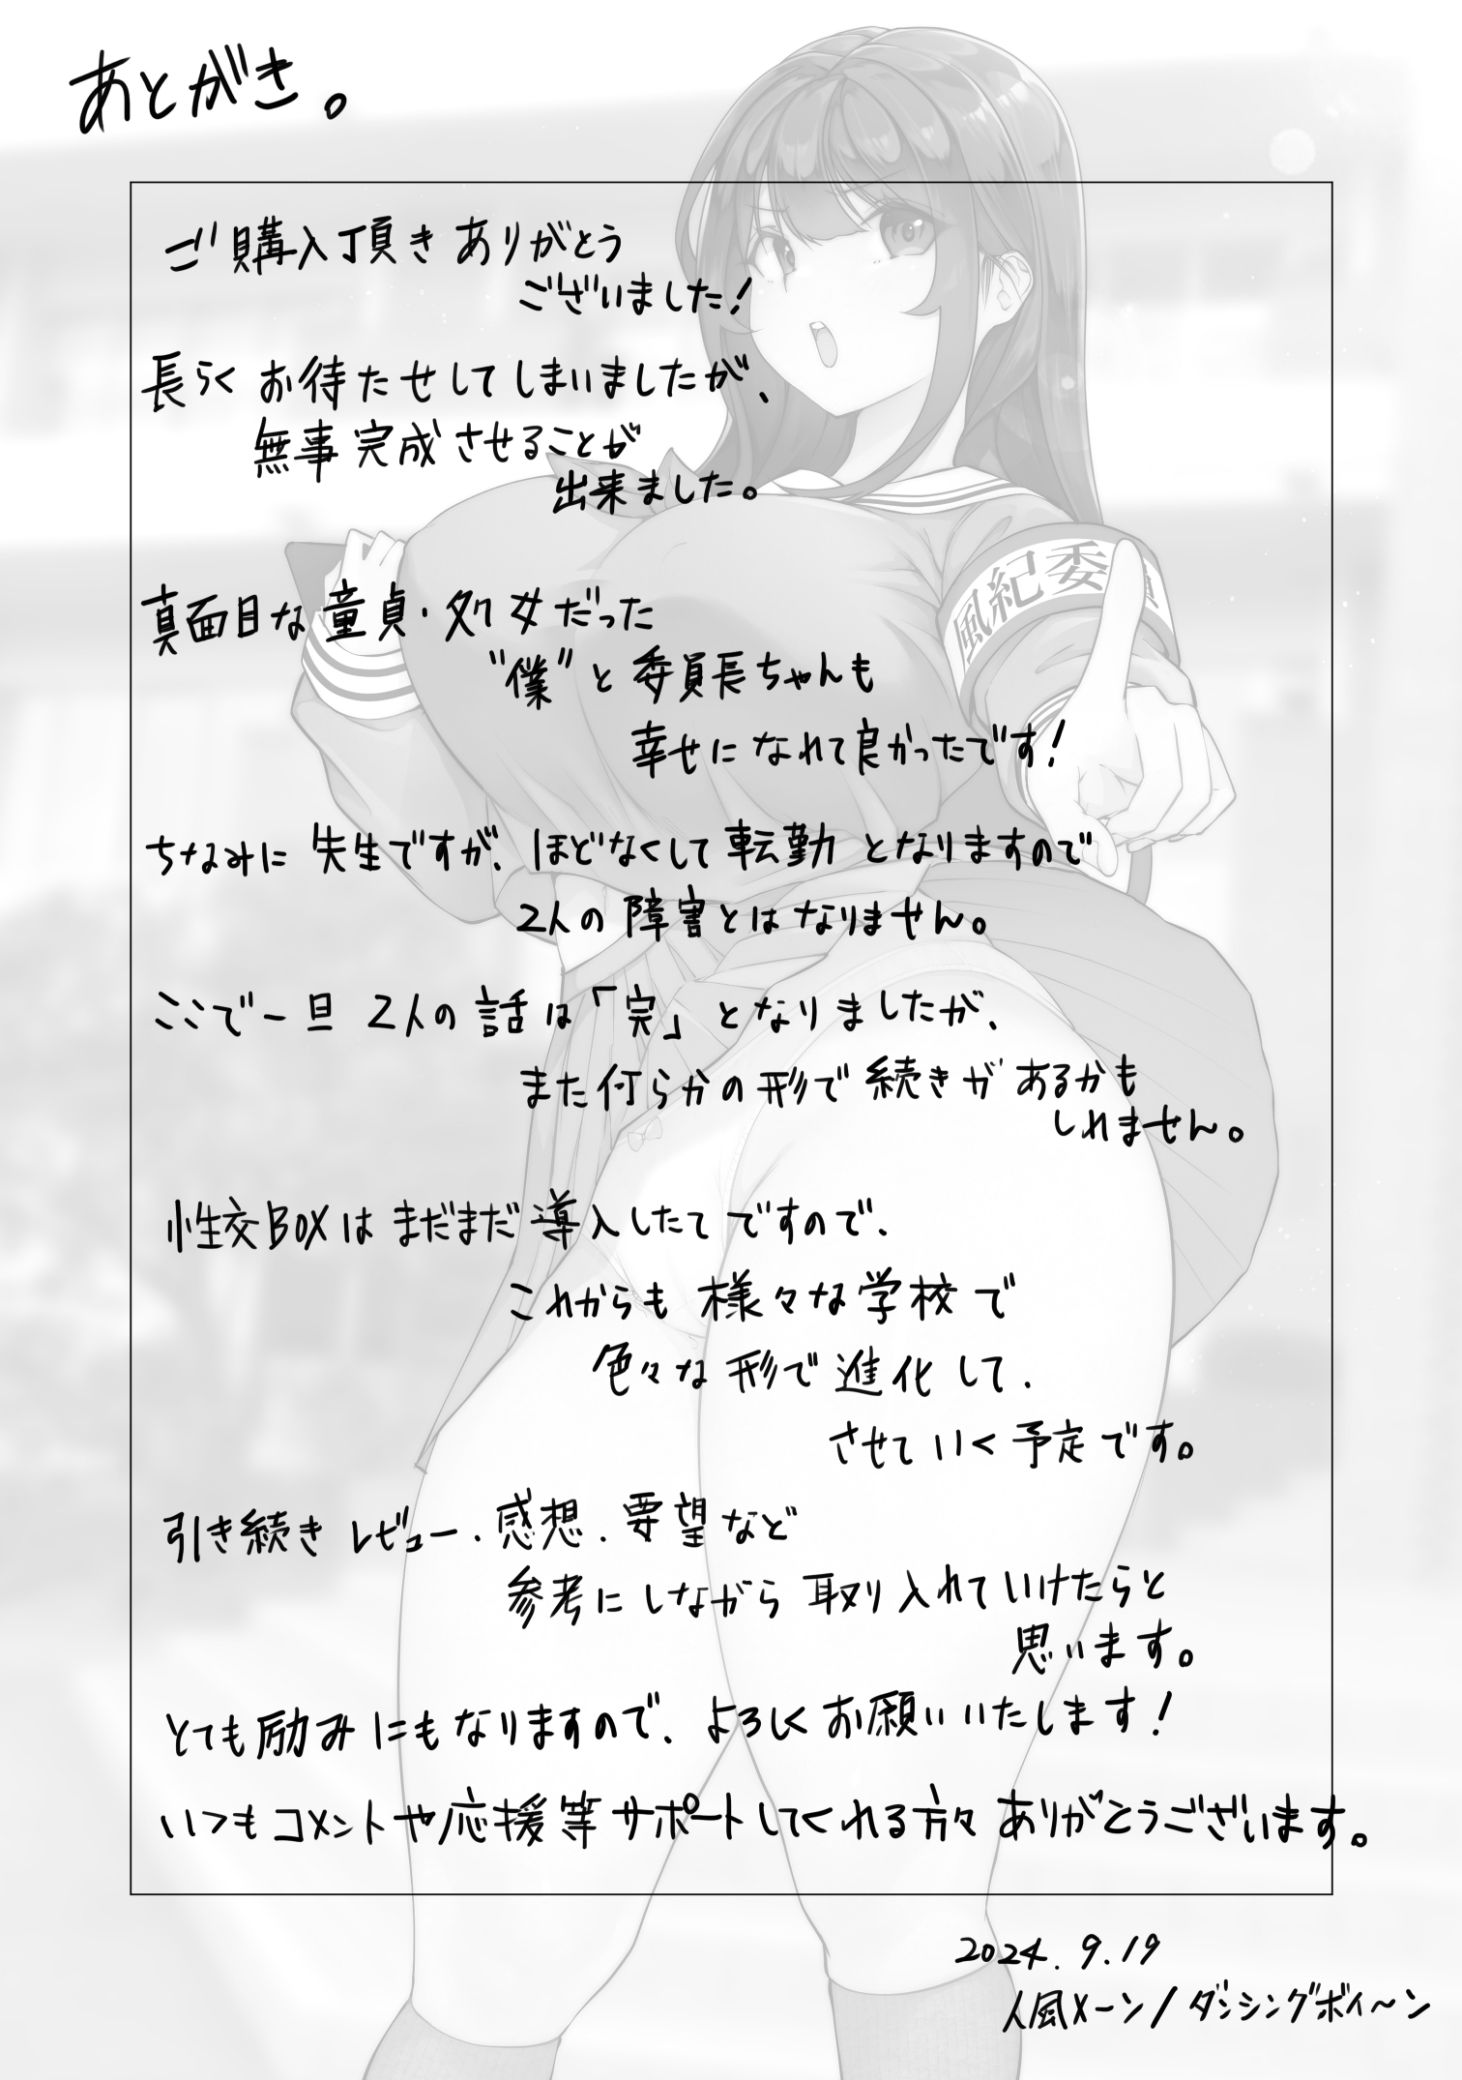 あとがき。
ご購入頂きありがとう
ございました!
長らくお待たせしてしまいましたが、
無事完成させることが
出来ました。
真面目な童貞・処女だった
"僕"と委員長ちゃんも
幸せになれて良かったです!
ちなみに先生ですが、ほどなくして転勤となりますので
2人の障害とはなりません。
ここで一旦2人の話は「完」となりましたが、
また何らかの形で続きがあるかも
しれません。
性交BOXはまだまだ導入したてですので、
これからも様々な学校で
色々な形で進化して、
させていく予定です。
引き続きレビュー・感想・要望など
参考にしながら取り入れていけたらと
思います。
とても励みにもなりますので、よろしくお願いいたします!
いつもコメントや応援等サポートしてくれる方々ありがとうございます。
2024.9.19
人風メーン/ダンシングボイ〜ン
風紀委員